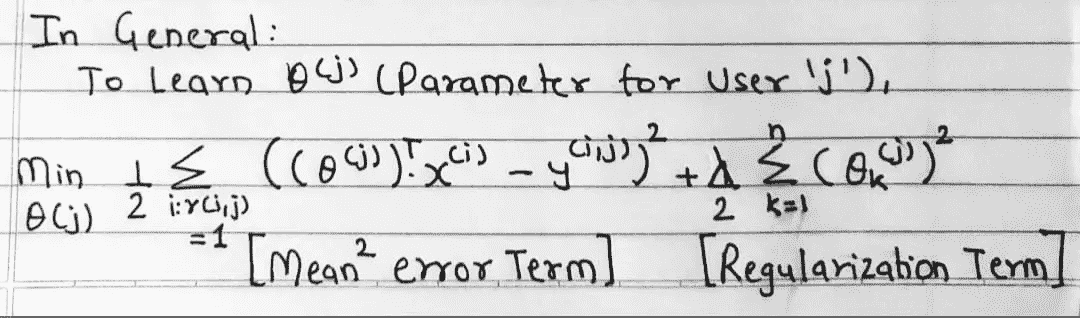 In General:
To Learn θ(j) (Parameter for User 'j'),
Min θ(j) 1/2 Σ i:r(i,j)=1 ((θ(j))ᵀ.x(i) - y(i,j))² + λ/2 Σ k=1 n (θk(j))²
[Mean² error Term] [Regularization Term]